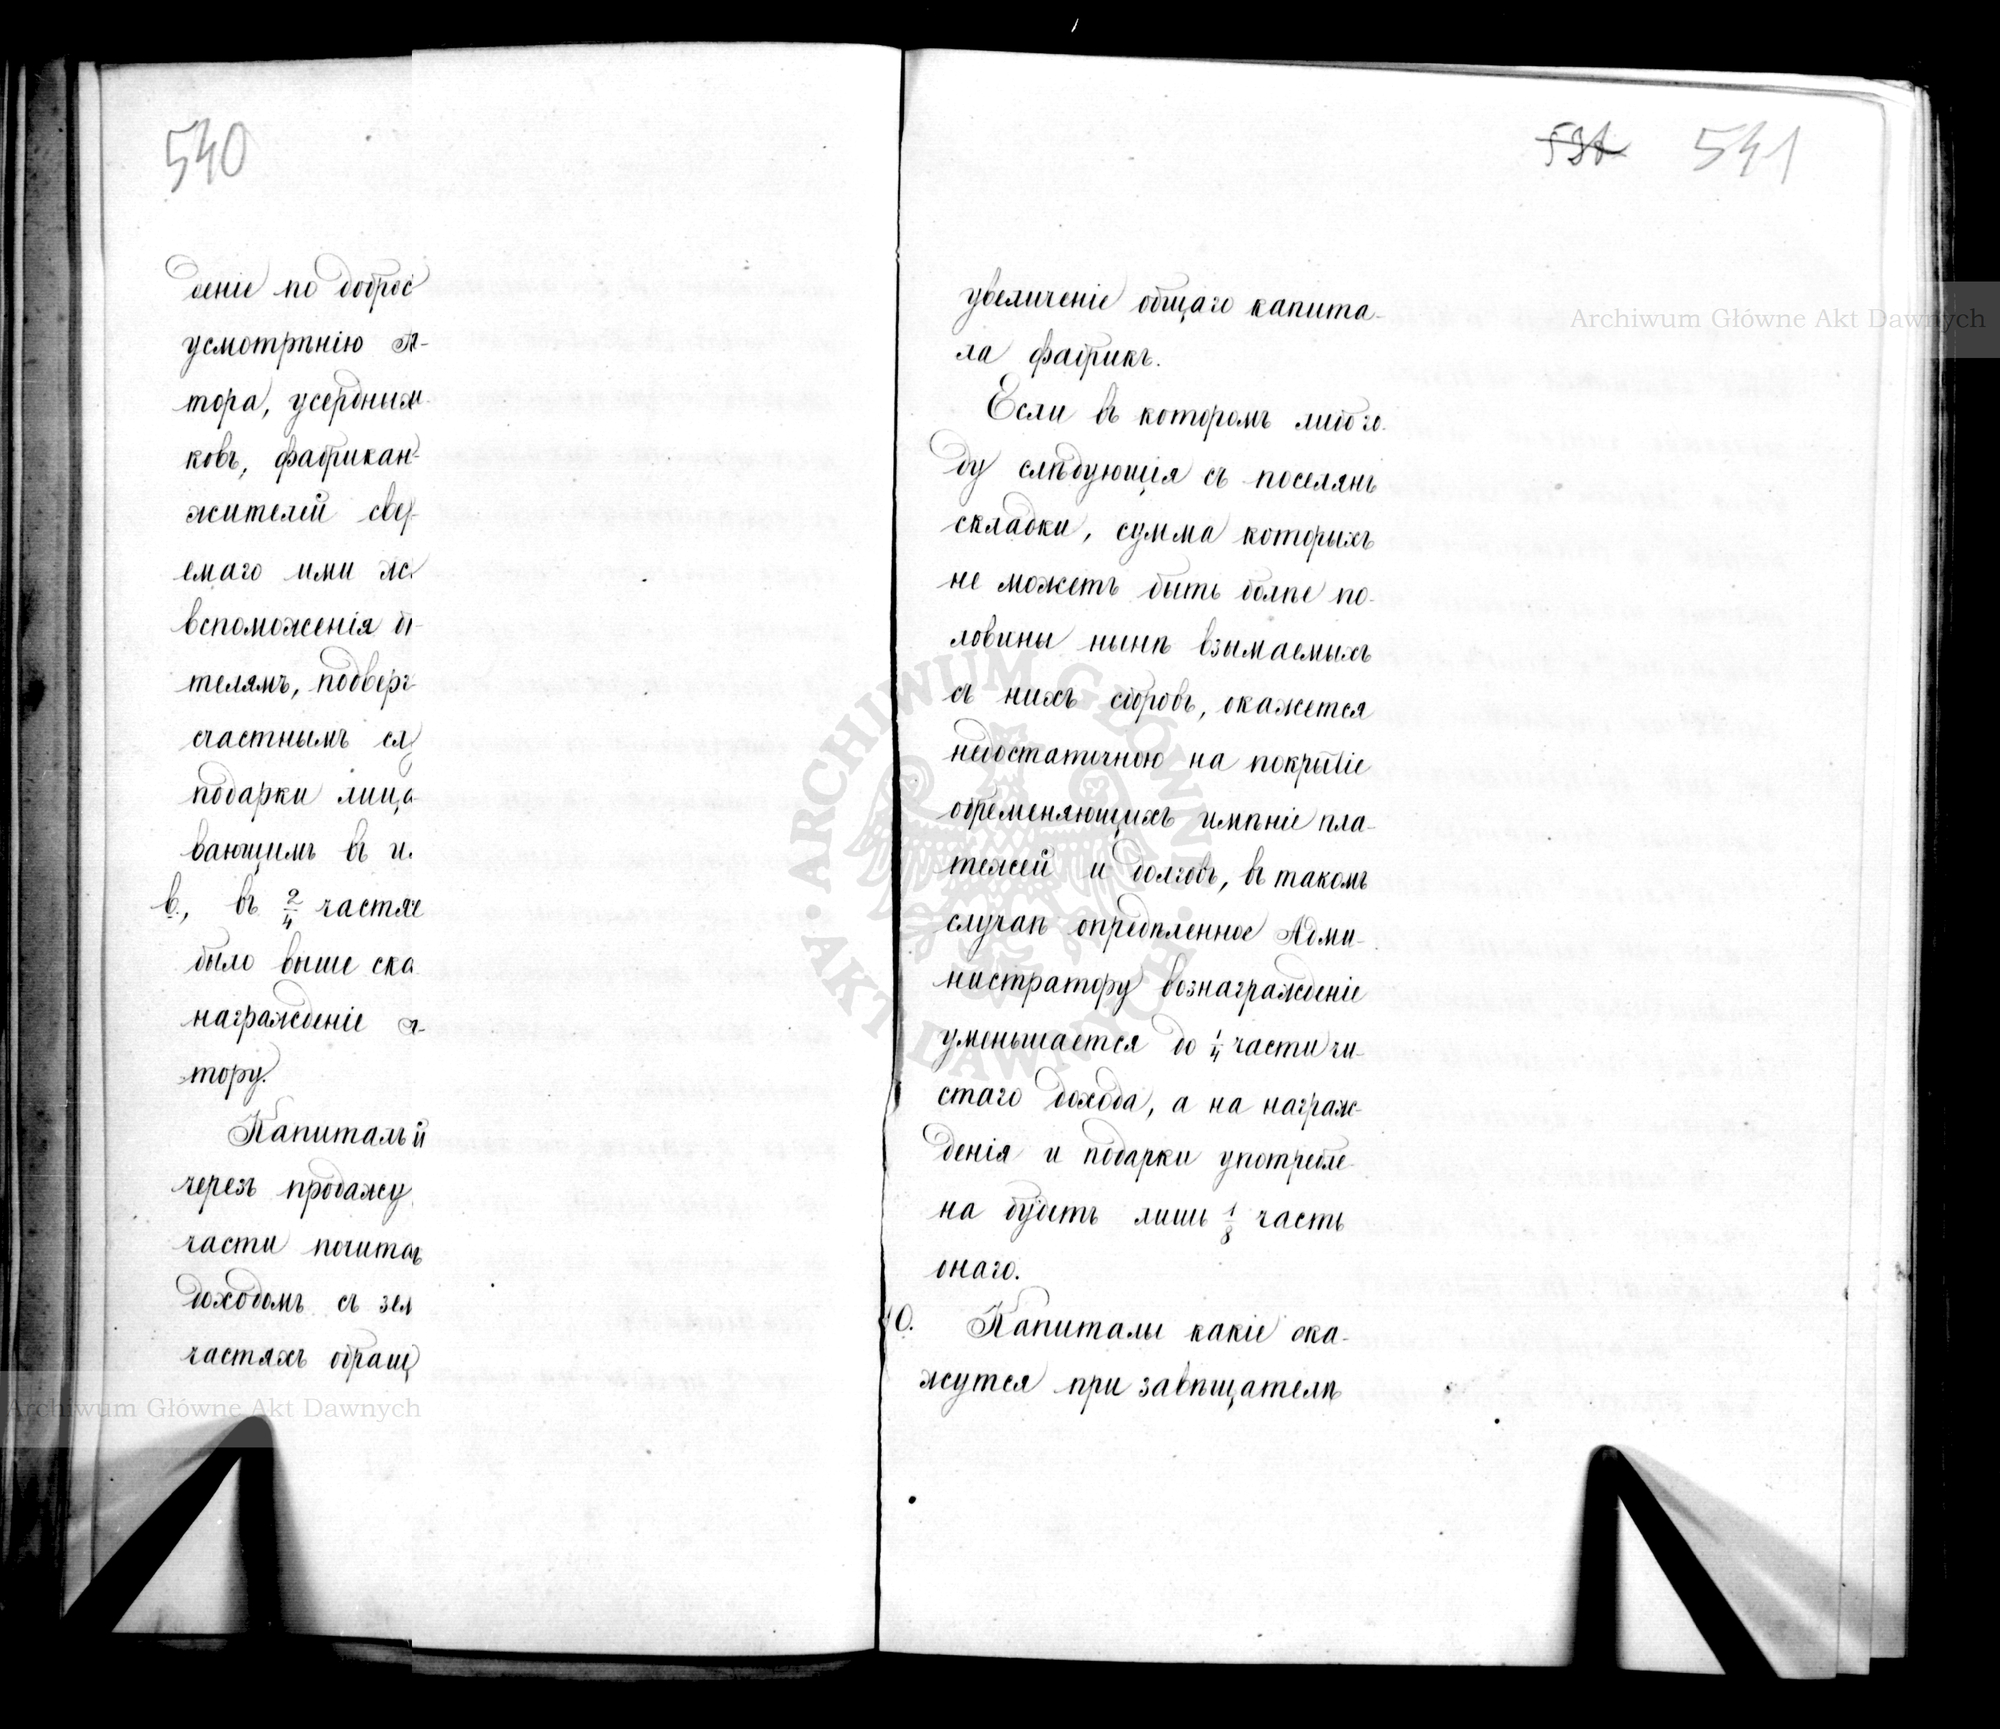 540
деніе по доброс
усмотрѣнію А-
тора, усердным
ковъ, фабрикан-
жителей свер
емаго ими жс
вспоможенія бѣ
телямъ, подверг
счастнымъ слу
подарки лица
вающимъ въ и.
в., въ 2/4 частях
было выше ска
награжденіе а-
тору.
Капиталы
черезъ продажу
части почитаю
доходомъ съ зем
частяхъ обращ
531 541
увеличеніе общаго капита-
ла фабрикъ.
Если въ которомъ либо го-
ду слѣдующія съ поселянъ
складки, сумма которыхъ
не можетъ быть болѣе по-
ловины нынѣ взымаемыхъ
съ нихъ сборовъ, окажется
недостаточною на покрытіе
обременяющихъ имѣніе пла-
тежей и долговъ, въ такомъ
случаѣ опредѣленное Адми-
нистратору вознагражденіе
уменьшается до 1/4 части чи-
стаго дохода, а на награж-
денія и подарки употребле-
на будетъ лишь 1/8 часть
онаго.
10. Капиталы какіе ока-
жутся при завѣщателѣ
Archiwum Główne Akt Dawnych
Archiwum Główne Akt Dawnych
ARCHIWUM GŁÓWNE · AKT DAWNYCH ·